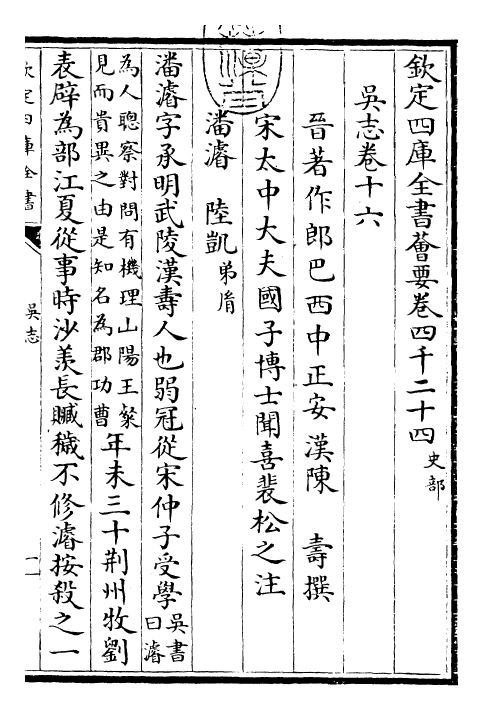 欽定四庫全書薈要卷四千二十四 史部
吳志卷十六
晉著作郎巴西中正安漢陳 壽撰
宋太中大夫國子博士聞喜裴松之注
潘濬 陸凱 弟胤
潘濬字承明武陵漢壽人也弱冠從宋仲子受學 吳書曰濬
為人聰察對問有機理山陽王粲見而貴異之由是知名為郡功曹 年未三十荆州牧劉
表辟為部江夏從事時沙羡長贓穢不修濬按殺之一
欽定四庫全書
吳志
一